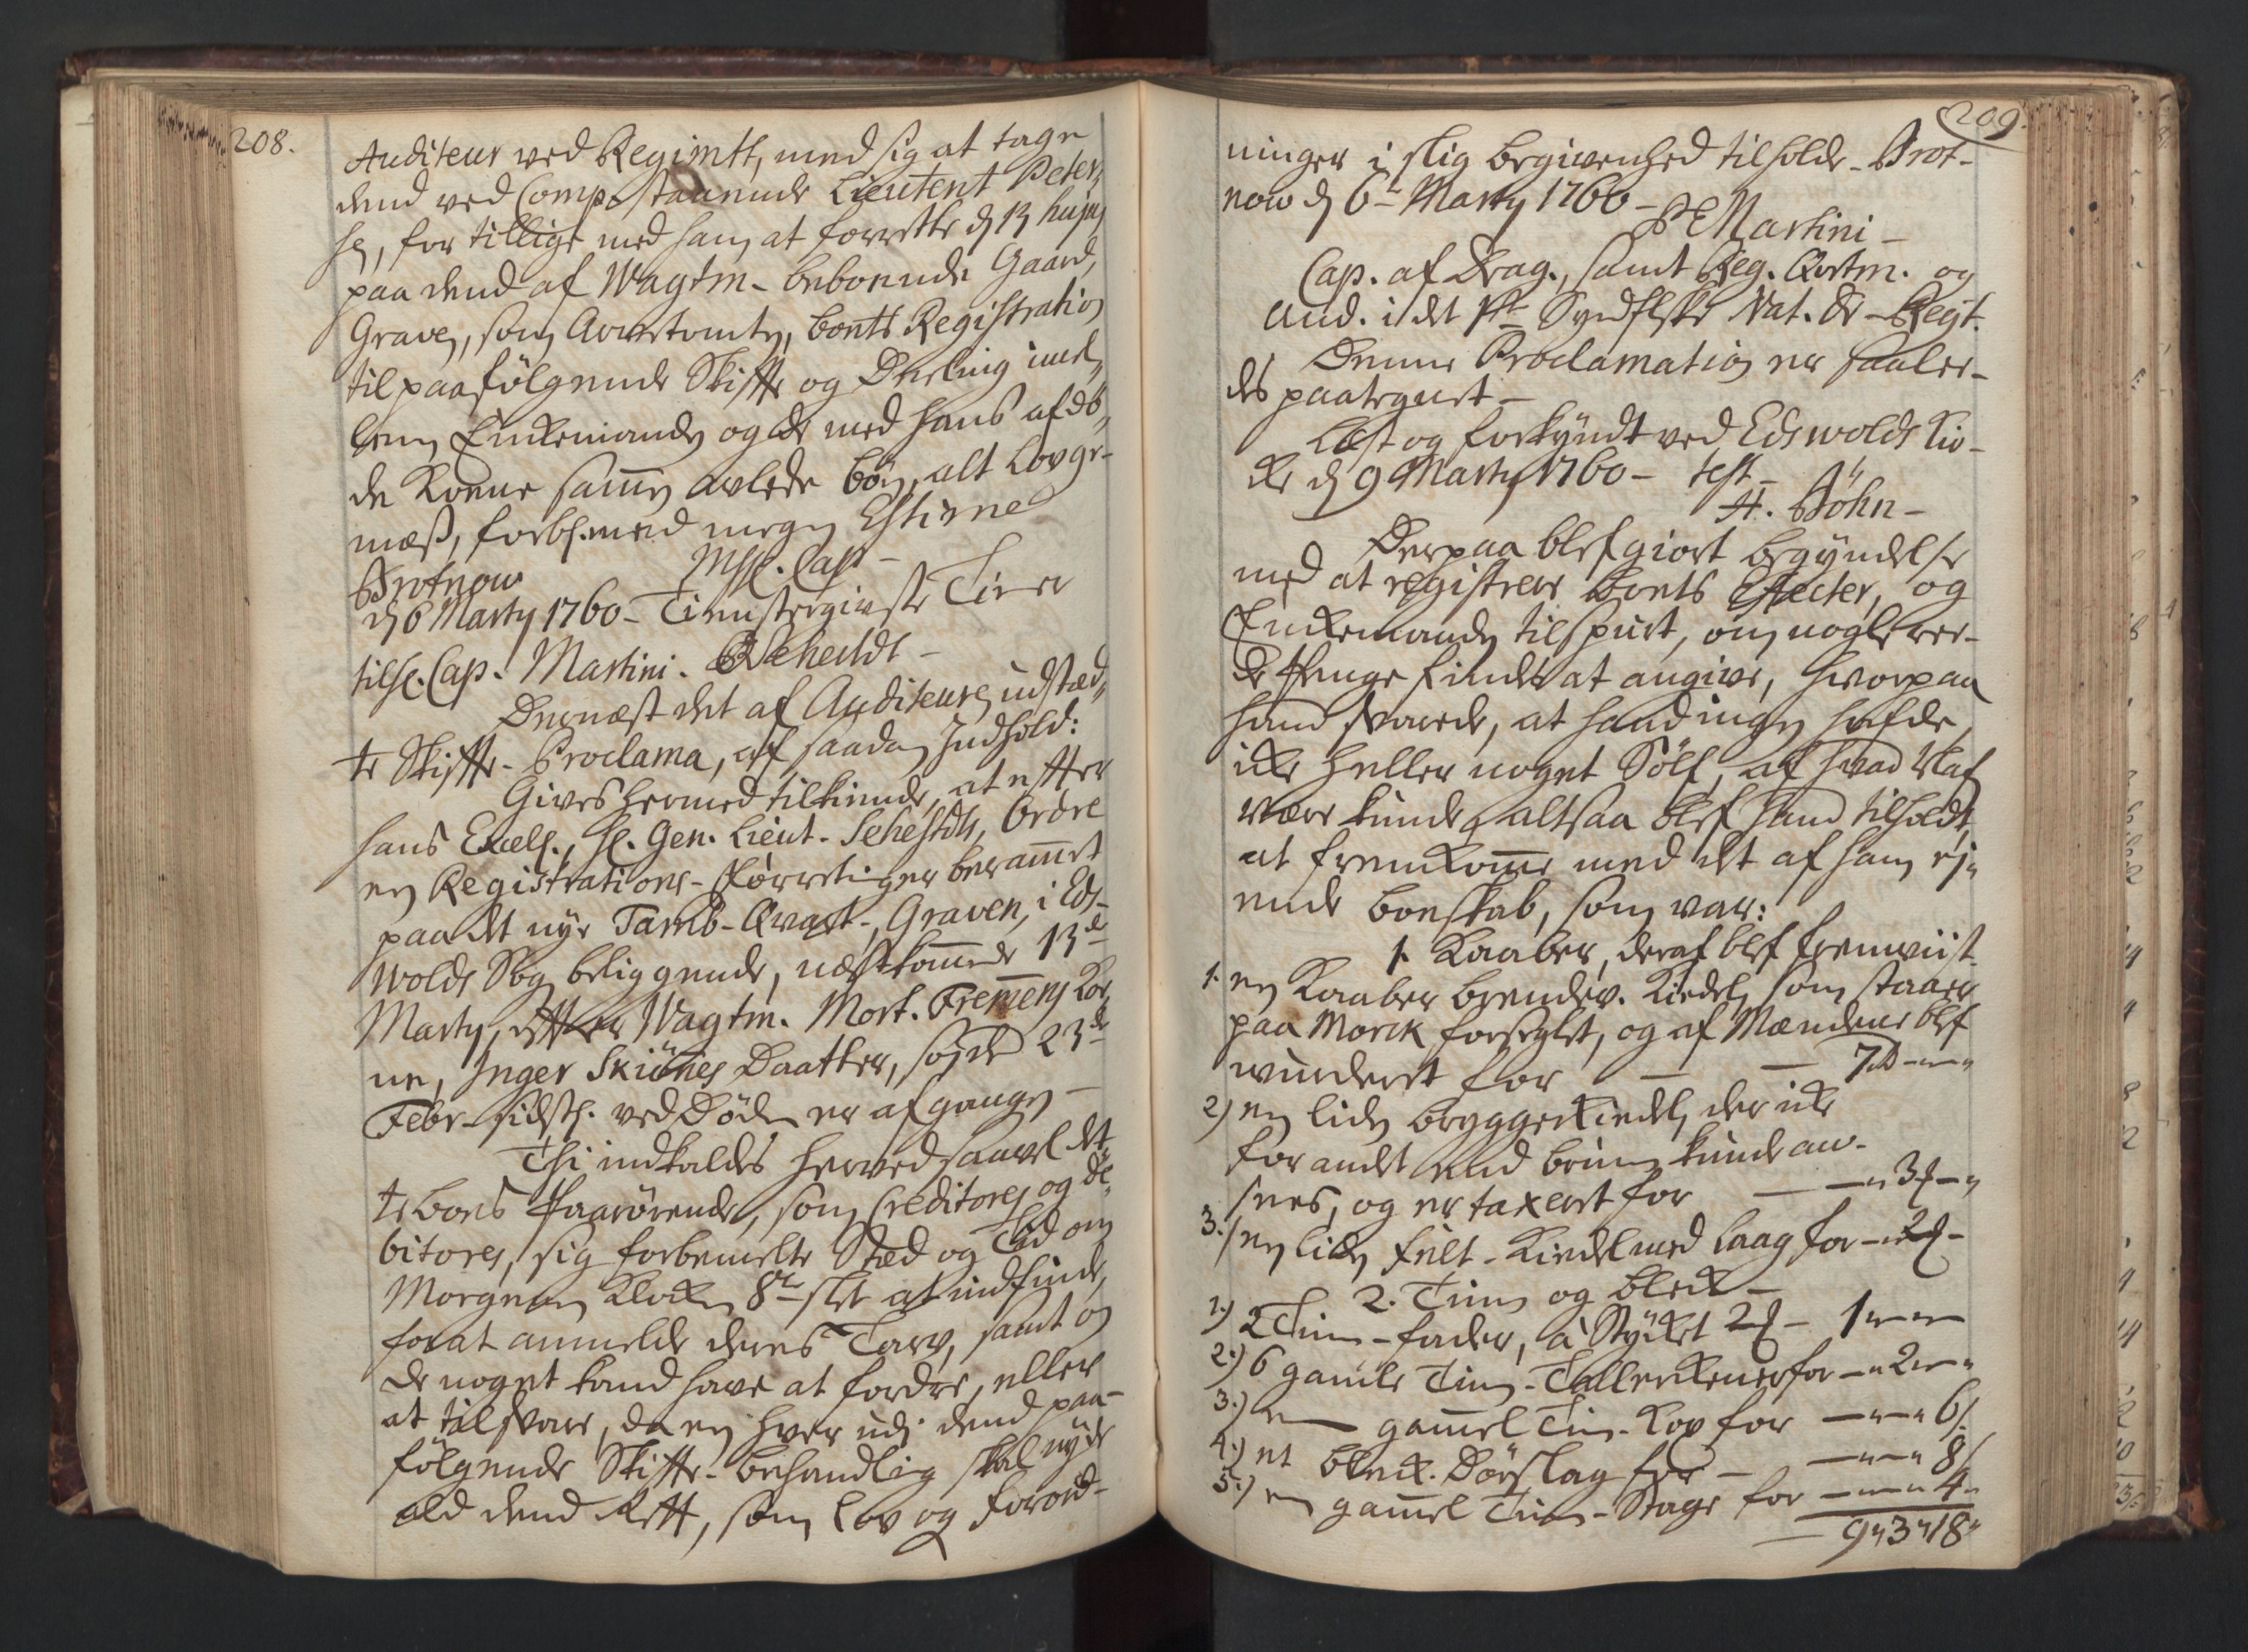 208.
Auditeur ved Regimtt, med sig at tage
dend ved Comp. staaende Lieutent Peter„
sen, for tillige med ham at forrette d 13 hujus
paa dend af Wagtm. beboende Gaard,
Graven, som Qvarteret, boets Registration
til paafölgende Skiffte og Deeling imel„
lem Enkemanden og de med hans afdö„
de Kone sammen avlede börn, alt lovge-
mæs, forbl. med megen Estime
Brotnow Msr. Cap
d 6 Marty 1760 - Tienstergivste Tiener
til Hr. Cap. Martini. Sehestedt
Dernæst det af Auditeuren udstæd„
te Skiffte-Proclama, af saadan Indhold:
Gives hermed tilkiende, at effter
hans Excell., Hr. Gen. Lieut. Sehestdts, Ordre
en Registrations-Forretning er berammet
paa det nye Tamb-Qvart., Graven, i Eds-
wolds Sogn beliggende, næstkommende 13de
Marty, effter Wagtm. Mort. Fremens Ko„
ne, Inger Skiönes Daatter, som den 23de
Febr. sidstl. ved Döden er afgangen
Thi indkaldes herved saavel det„
te boes Paarörende, som Creditores og De„
bitores, sig forbemelte Stæd og Tiid om
Morgenen Klocken 8te slet at indfinde,
for at anmelde deres Tarv, samt og
de noget kand have at fordre, eller
at tilsvare, da en hver udj dend paa-
fölgende Skiffte-behandling skal nyde
ald dend Rett, som lov og forord-
209.
ninger i slig begivenhed tilholde. Brot-
now d 6te Marty 1760 -
PE Martini -
Cap. af Drag., samt Reg. Qvartm. og
Aud. i det 1ste Syndflske Nat. Dr. Regt.
Denne Proclamation er saalee-
des paategnet -
Læst og forkyndt ved Edswolds Kir-
ke d 9 Marty 1760 - test -
H. Böhn -
Derpaa blef giort begyndelse
med at registrere boets Effecter, og
Enkemanden tilspurt, om nogle ree-
de Penge findes at angive, hvorpaa
hand svarede, at hand ingen hafde,
ikke heller noget Sölf, af hvad Slaf
være kunde, altsaa blef hand tilholdt,
at fremkomme med det af ham ej„
ende boeskab, som var:
1. Kaaber, deraf blef fremviist
1. en Kaaber brendev. Kiedel, som staaer
paa Morck forseglet, og af Mændene blef
wurderet for — — 7 rd - „ - „
2) en liden bryggerkiedel, der ikke
for andet end brun kunde an-
sees, og er taxeret for — - „ 3 - „
3.) en liden felt-Kiedel med laag for - „ 2 -
2. Tinn og bleck -
1.) 2 Tinn-fader, à Stycket 2 - 1 „ - „
2.) 6 gamle Tinn-Tallerkener for - „ 2 - „
3.) en gammel Tin-Kop for — „ - „ 6
4.) et bleck-Dörslag for — — „ - „ 8
5.) en gammel Tinn-Stage for — „ - „ 4 „
9 „ 3 „ 18 „